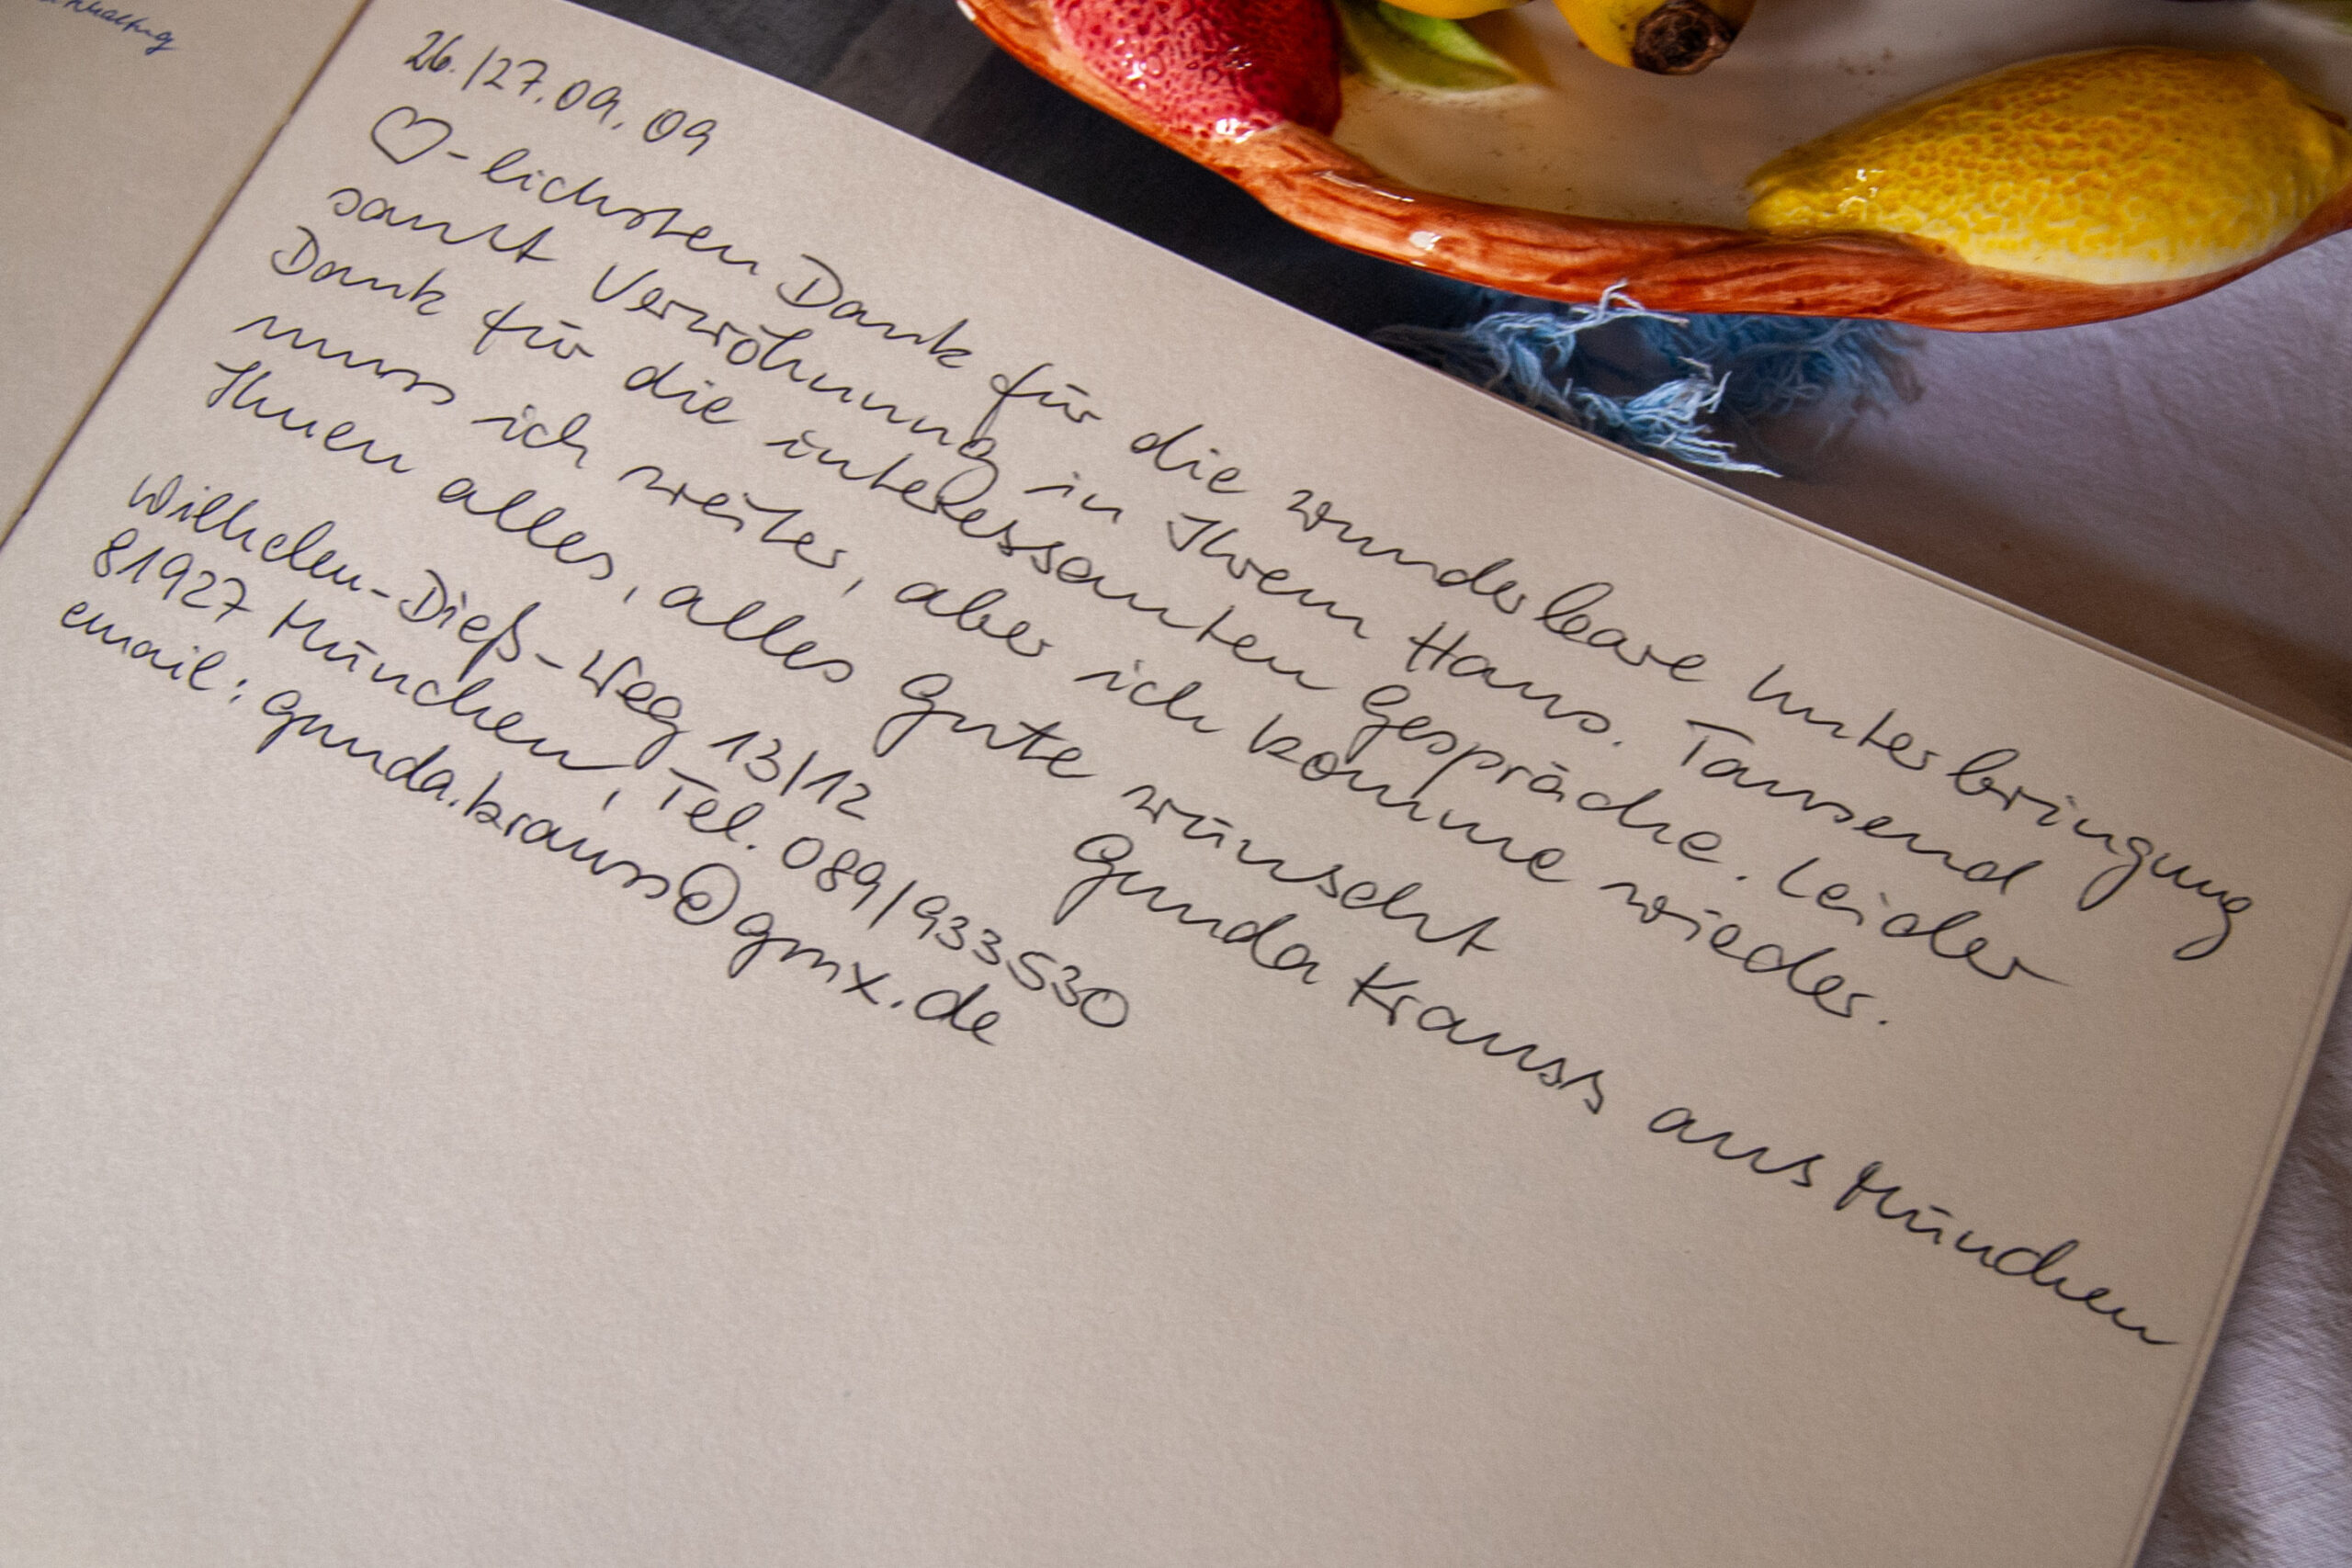 26./27.09.09
♡-lichsten Dank für die wunderbare Unterbringung
samt Verwöhnung in Ihrem Haus. Tausend
Dank für die interessanten Gespräche. Leider
muss ich weiter, aber ich komme wieder.
Ihnen alles, alles Gute wünscht
Gunda Krauss aus München
Wilhelm-Dieß-Weg 13/12
81927 München, Tel. 089/933530
email: gunda.krauss@gmx.de